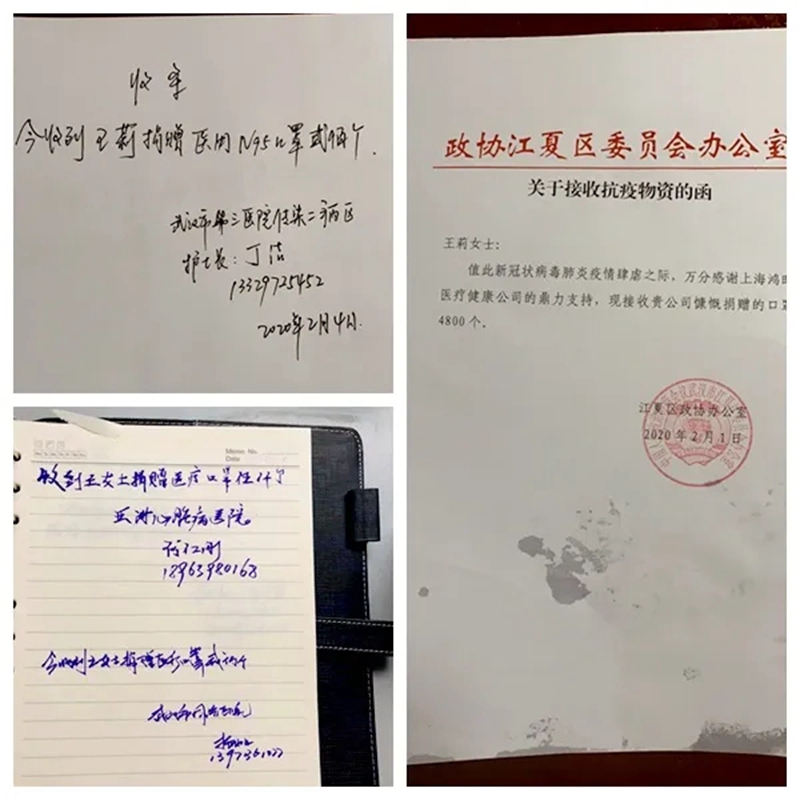 收条
今收到王莉捐赠医用N95口罩贰佰个.
武汉市第三医院传染二病区
护士长:丁洁
13329725452
2020年2月4日.
收到王女士捐赠医疗口罩
亚洲心脏病医院。
18963980168
今收到王女士捐赠医疗口罩
政协江夏区委员会办公室
关于接收抗疫物资的函
王莉女士:
值此新冠状病毒肺炎疫情肆虐之际,万分感谢上海鸿
医疗健康公司的鼎力支持,现接收贵公司慷慨捐赠的口罩
4800个。
江夏区政协办公室
2020年2月1日